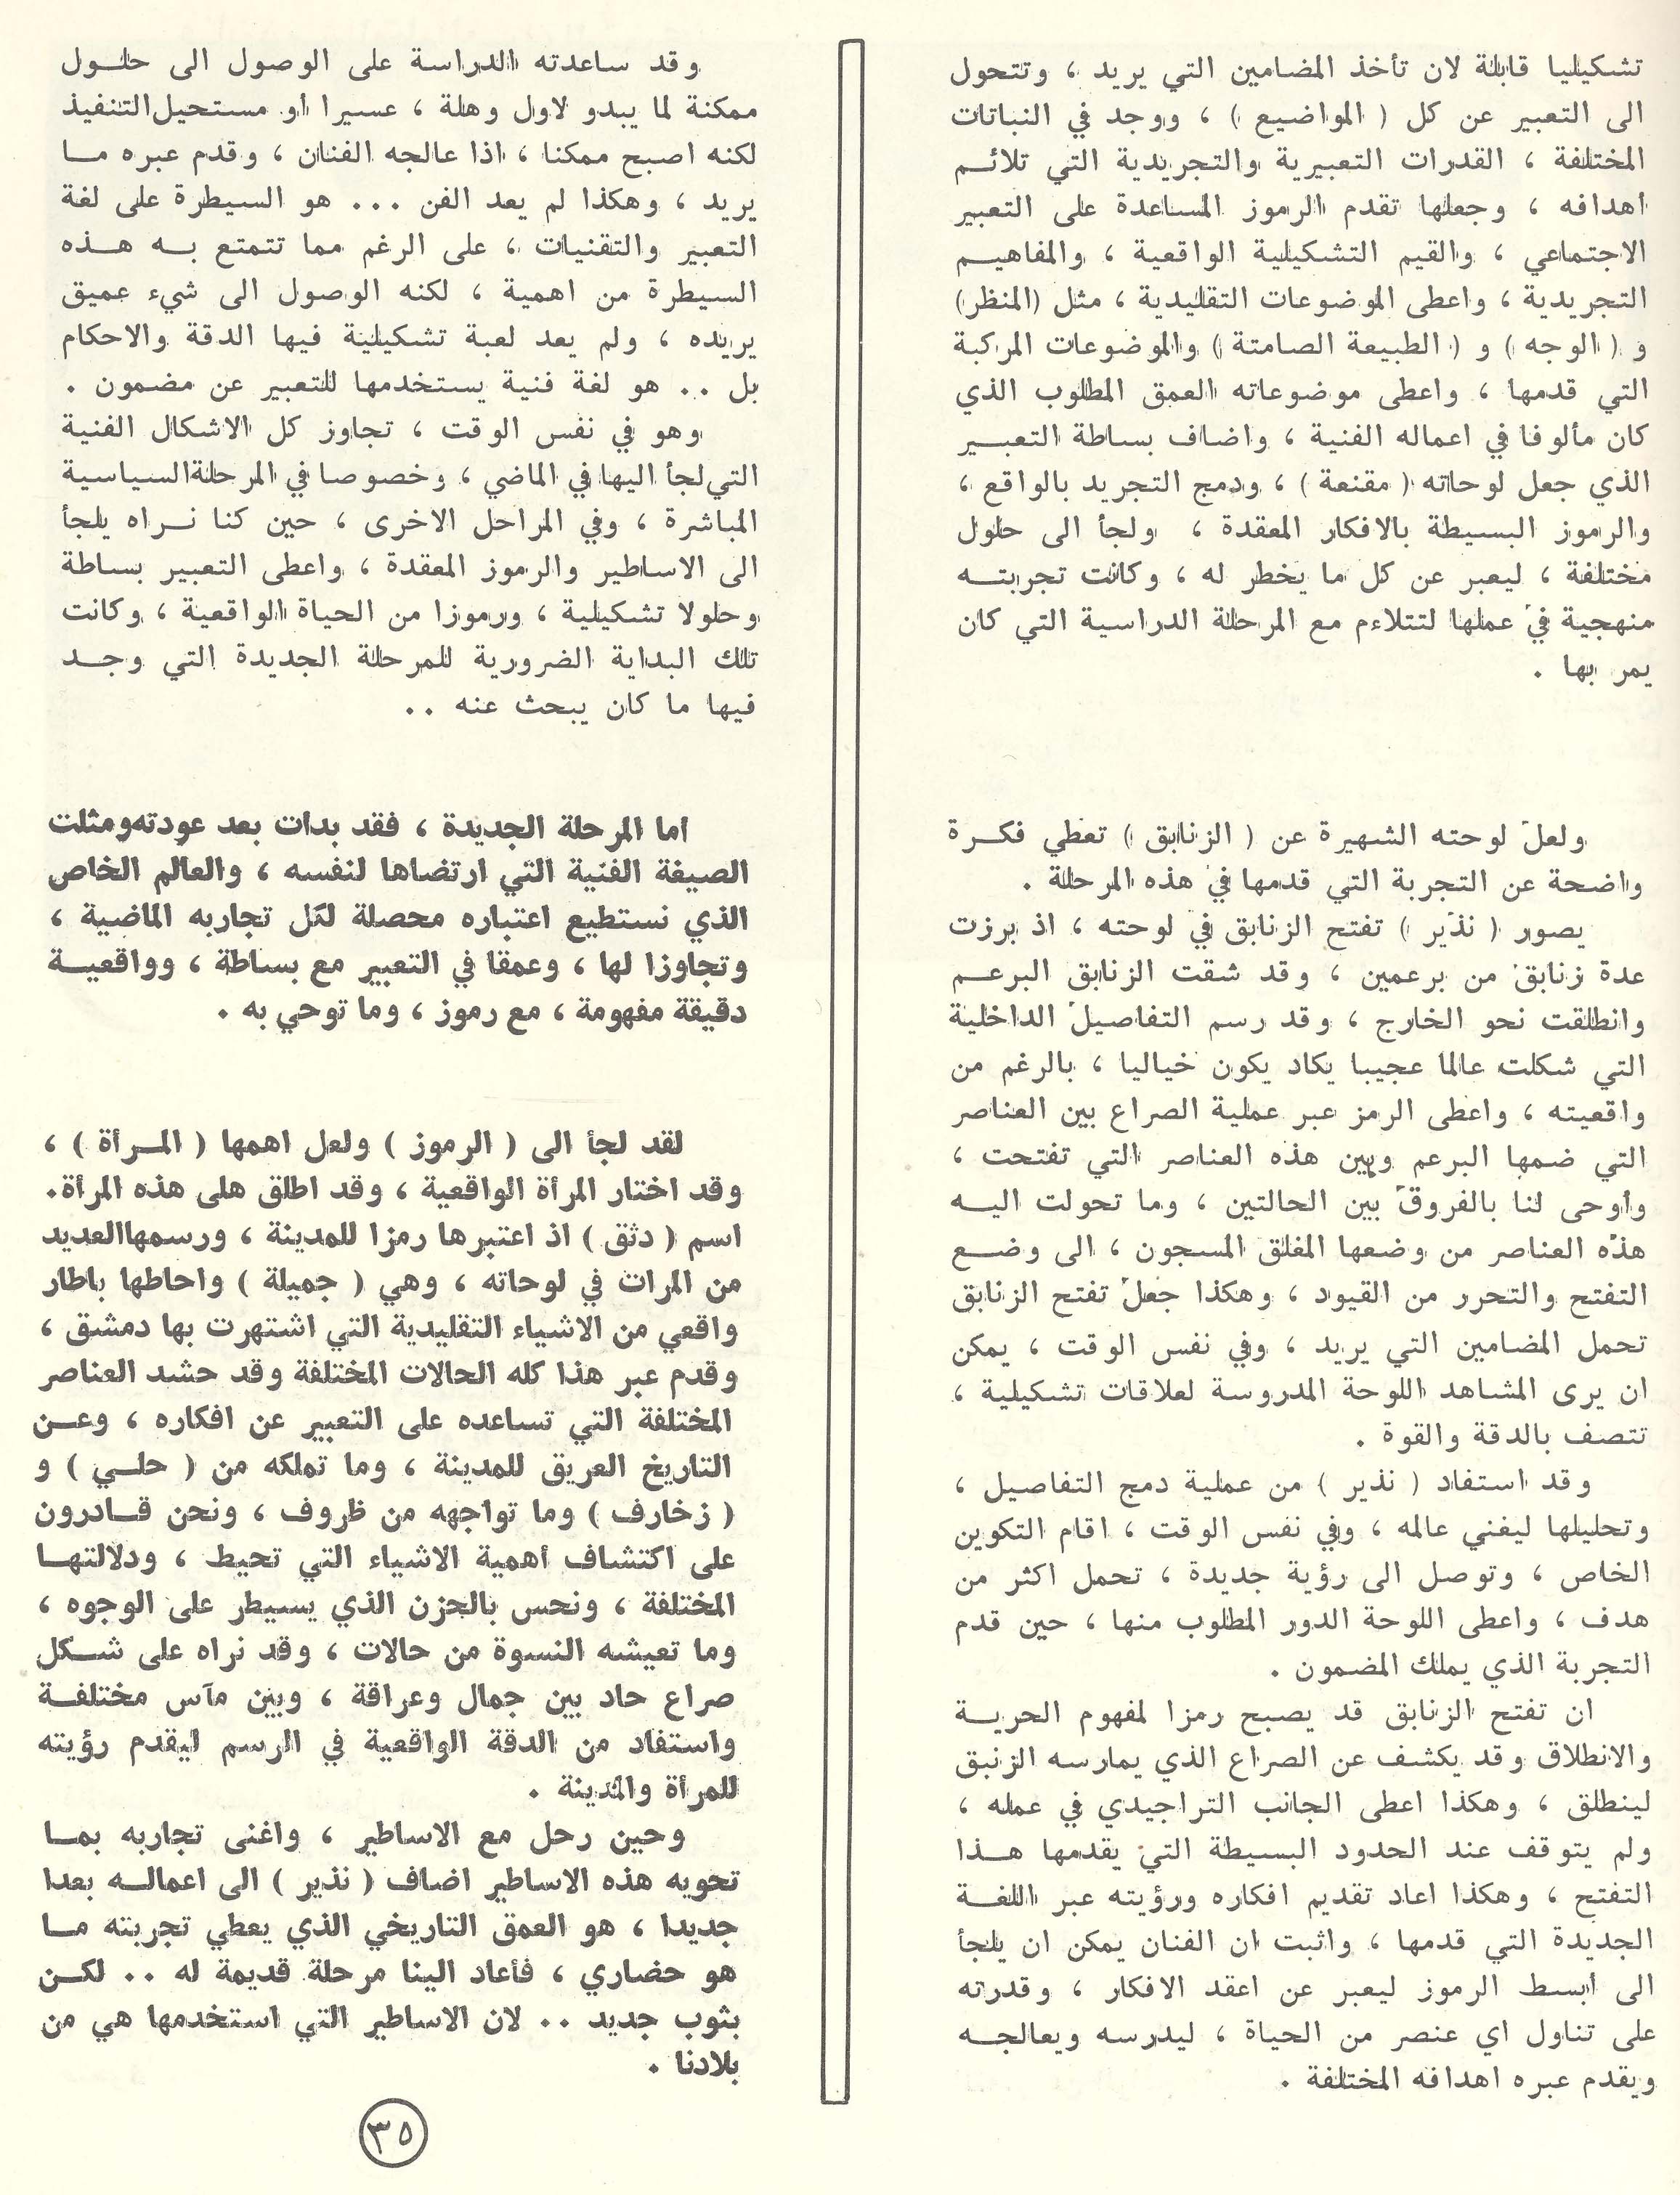 تشكيليا قابلة لان تأخذ المضامين التي يريد ، وتتحول
الى التعبير عن كل ( المواضيع ) ، ووجد في النباتات
المختلفة ، القدرات التعبيرية والتجريدية التي تلائم
اهدافه ، وجعلها تقدم الرموز المساعدة على التعبير
الاجتماعي ، والقيم التشكيلية الواقعية ، والمفاهيم
التجريدية ، واعطى الموضوعات التقليدية ، مثل (المنظر)
و ( الوجه ) و ( الطبيعة الصامتة ) والموضوعات المركبة
التي قدمها ، واعطى موضوعاته العمق المطلوب الذي
كان مألوفا في اعماله الفنية ، واضاف بساطة التعبير
الذي جعل لوحاته ( مقنعة ) ، ودمج التجريد بالواقع ،
والرموز البسيطة بالافكار المعقدة ، ولجأ الى حلول
مختلفة ، ليعبر عن كل ما يخطر له ، وكانت تجربته
منهجية في عملها لتتلاءم مع المرحلة الدراسية التي كان
يمر بها .
ولعل لوحته الشهيرة عن ( الزنابق ) تعطي فكرة
واضحة عن التجربة التي قدمها في هذه المرحلة .
يصور ( نذير ) تفتح الزنابق في لوحته ، اذ برزت
عدة زنابق من برعمين ، وقد شقت الزنابق البرعم
وانطلقت نحو الخارج ، وقد رسم التفاصيل الداخلية
التي شكلت عالما عجيبا يكاد يكون خياليا ، بالرغم من
واقعيته ، واعطى الرمز عبر عملية الصراع بين العناصر
التي ضمها البرعم وبين هذه العناصر التي تفتحت ،
وأوحى لنا بالفروق بين الحالتين ، وما تحولت اليه
هذه العناصر من وضعها المغلق المسجون ، الى وضع
التفتح والتحرر من القيود ، وهكذا جعل تفتح الزنابق
تحمل المضامين التي يريد ، وفي نفس الوقت ، يمكن
ان يرى المشاهد اللوحة المدروسة لعلاقات تشكيلية ،
تتصف بالدقة والقوة .
وقد استفاد ( نذير ) من عملية دمج التفاصيل ،
وتحليلها ليغني عالمه ، وفي نفس الوقت ، اقام التكوين
الخاص ، وتوصل الى رؤية جديدة ، تحمل اكثر من
هدف ، واعطى اللوحة الدور المطلوب منها ، حين قدم
التجربة الذي يملك المضمون .
ان تفتح الزنابق قد يصبح رمزا لمفهوم الحرية
والانطلاق وقد يكشف عن الصراع الذي يمارسه الزنبق
لينطلق ، وهكذا اعطى الجانب التراجيدي في عمله ،
ولم يتوقف عند الحدود البسيطة التي يقدمها هذا
التفتح ، وهكذا اعاد تقديم افكاره ورؤيته عبر اللغة
الجديدة التي قدمها ، واثبت ان الفنان يمكن ان يلجأ
الى أبسط الرموز ليعبر عن اعقد الافكار ، وقدرته
على تناول اي عنصر من الحياة ، ليدرسه ويعالجه
ويقدم عبره اهدافه المختلفة .
وقد ساعدته الدراسة على الوصول الى حلول
ممكنة لما يبدو لاول وهلة ، عسيرا أو مستحيل التنفيذ
لكنه اصبح ممكنا ، اذا عالجه الفنان ، وقدم عبره ما
يريد ، وهكذا لم يعد الفن ... هو السيطرة على لغة
التعبير والتقنيات ، على الرغم مما تتمتع به هذه
السيطرة من اهمية ، لكنه الوصول الى شيء عميق
يريده ، ولم يعد لعبة تشكيلية فيها الدقة والاحكام
بل .. هو لغة فنية يستخدمها للتعبير عن مضمون .
وهو في نفس الوقت ، تجاوز كل الاشكال الفنية
التي لجأ اليها في الماضي ، وخصوصا في المرحلة السياسية
المباشرة ، وفي المراحل الاخرى ، حين كنا نراه يلجأ
الى الاساطير والرموز المعقدة ، واعطى التعبير بساطة
وحلولا تشكيلية ، ورموزا من الحياة الواقعية ، وكانت
تلك البداية الضرورية للمرحلة الجديدة التي وجد
فيها ما كان يبحث عنه ..
اما المرحلة الجديدة ، فقد بدات بعد عودته ومثلت
الصيغة الفنية التي ارتضاها لنفسه ، والعالم الخاص
الذي نستطيع اعتباره محصلة لكل تجاربه الماضية ،
وتجاوزا لها ، وعمقا في التعبير مع بساطة ، وواقعية
دقيقة مفهومة ، مع رموز ، وما توحي به .
لقد لجأ الى ( الرموز ) ولعل اهمها ( المرأة ) ،
وقد اختار المرأة الواقعية ، وقد اطلق هلى هذه المرأة.
اسم ( دثق ) اذ اعتبرها رمزا للمدينة ، ورسمها العديد
من المرات في لوحاته ، وهي ( جميلة ) واحاطها باطار
واقعي من الاشياء التقليدية التي اشتهرت بها دمشق ،
وقدم عبر هذا كله الحالات المختلفة وقد حشد العناصر
المختلفة التي تساعده على التعبير عن افكاره ، وعن
التاريخ العريق للمدينة ، وما تملكه من ( حلي ) و
( زخارف ) وما تواجهه من ظروف ، ونحن قادرون
على اكتشاف أهمية الاشياء التي تحيط ، ودلالتها
المختلفة ، ونحس بالحزن الذي يسيطر على الوجوه ،
وما تعيشه النسوة من حالات ، وقد نراه على شكل
صراع حاد بين جمال وعراقة ، وبين مآس مختلفة
واستفاد من الدقة الواقعية في الرسم ليقدم رؤيته
للمرأة والمدينة .
وحين رحل مع الاساطير ، واغنى تجاربه بما
تحويه هذه الاساطير اضاف ( نذير ) الى اعماله بعدا
جديدا ، هو العمق التاريخي الذي يعطي تجربته ما
هو حضاري ، فأعاد الينا مرحلة قديمة له .. لكن
بثوب جديد .. لان الاساطير التي استخدمها هي من
بلادنا .
٣٥